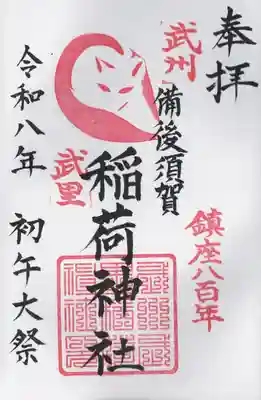 奉拝
鎮座八百年
武州
備後須賀
稲荷神社
武里
令和八年 初午大祭